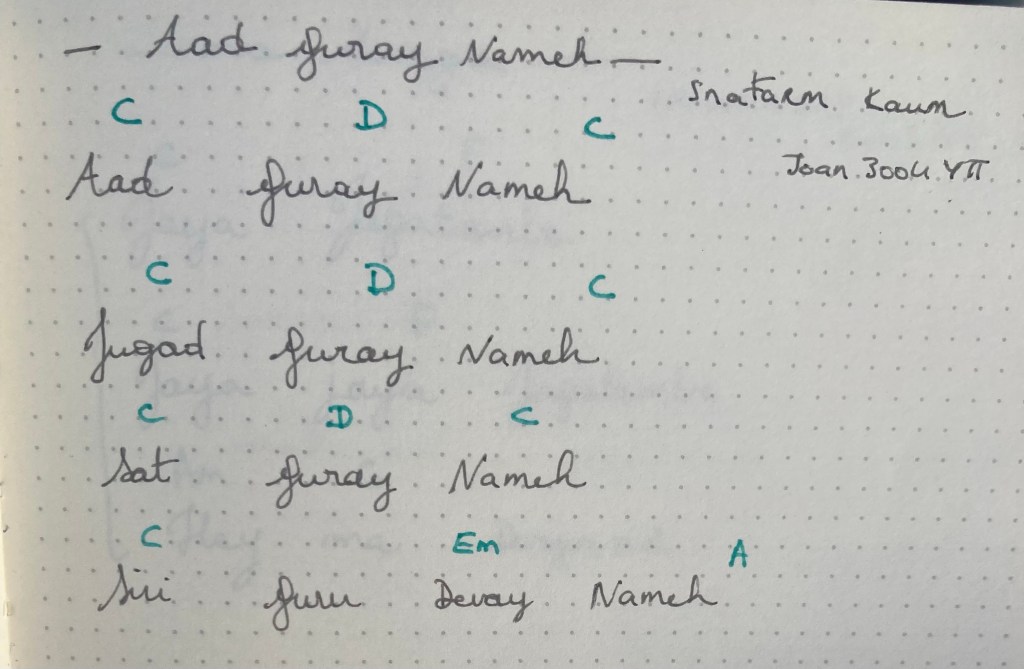 — Aad Guray Nameh —
Snatarm Kaum
C D C
Aad Guray Nameh
C D C
Jugad Guray Nameh
C D C
Sat Guray Nameh
C Em A
Siri Guru Devay Nameh